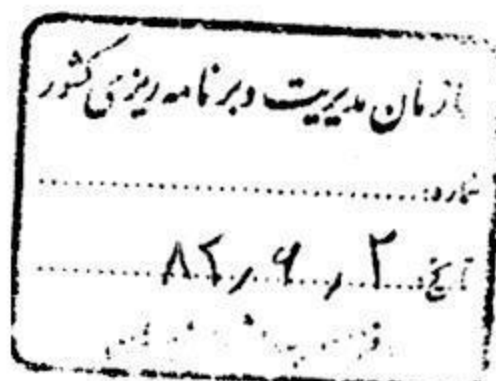 ازمان مدیریت و برنامه ریزی کشور
شماره:
تاریخ: ۸۲٫۶٫۲